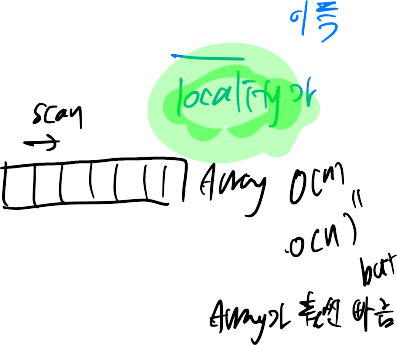 이득
locality가
scan
Array O(n)
"
O(n)
but
Array가 훨씬 빠름